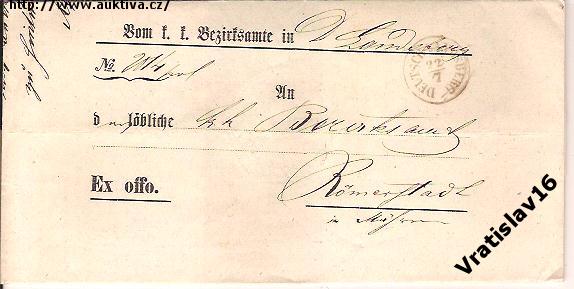 http://www.auktiva.cz/
Vom k. k. Bezirksamte in D Landsberg
No.
DEUTSCH BERG
22/7
An
d löbliche kk Bezirksamt
Ex offo.
Römerstadt
in Mähren
Vratislav16